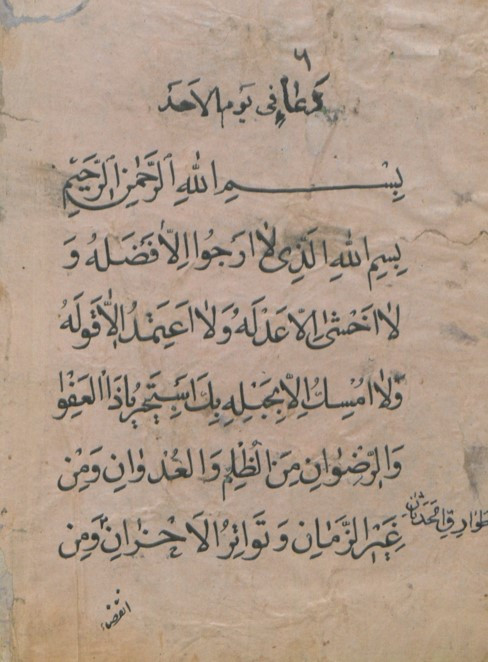 ٦
دعاء فى يوم الاحد
بِسْمِ اللهِ الرَّحْمٰنِ الرَّحِيْمِ
بِسِمِ اللهِ الَّذِى لَا اَرجُوا اِلَّا فَضلَهُ وَ
لَا اَخْشٰى اِلَّا عَدْلَهُ وَلَا اَعتَمِدُ اِلَّا قَولَهُ
وَلَا اُمْسِكُ اِلَّا بِحَبْلِهِ بِكَ اَسْتَجيرُ يَا ذَا الْعَفْوِ
وَالرِّضْوَانِ مِنَ الظُّلمِ وَالعُدْوَانِ وَمِنْ
غِيَرِ الزَّمَانِ وَتَوَاتُرُ الاَحْزَانِ وَمِن
طوارق الحدثان
انقضا